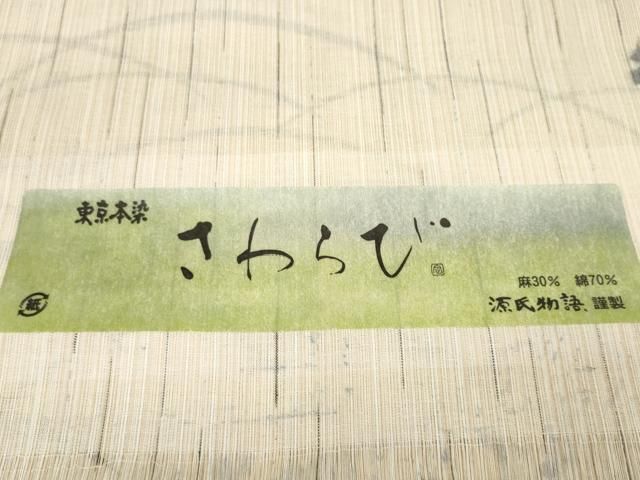 東京本染
さわらび
麻30% 綿70%
源氏物語 謹製
紙